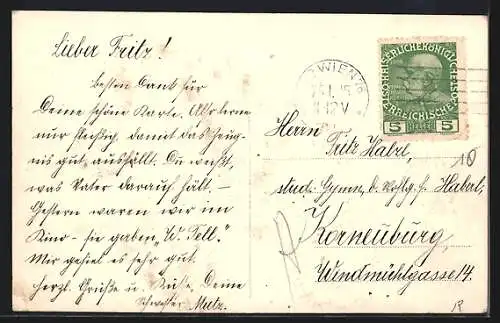 Lieber Fritz!
besten Dank für
Deine schöne Karte. Also lerne
nur fleißig, damit das Zeug-
nis gut ausfällt. Du weißt,
was Vater darauf hält. –
Gestern waren wir im
Kino – sie gaben „W. Tell."
Mir gefiel es sehr gut.
herzl. Grüße u. Küße, Deine
Schwester Mutz.
WIEN
5 5
Herrn
Fritz Haberl,
stud. Gymn. b. f. Haberl,
Korneuburg
Windmühlgasse 14.
10